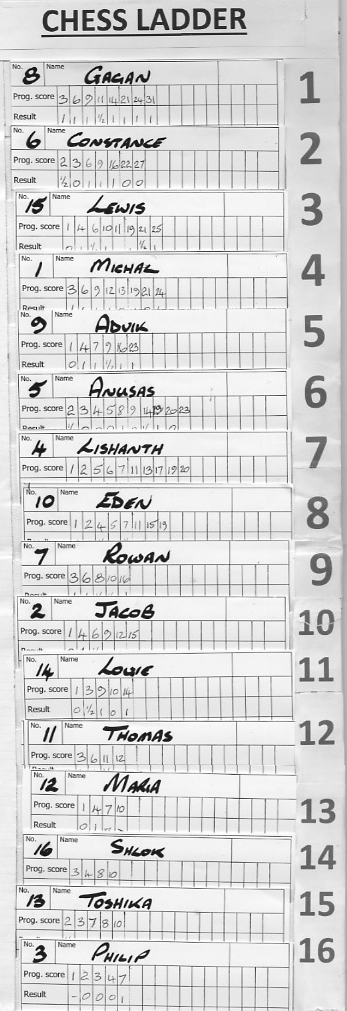 CHESS LADDER
No. 8 Name GAGAN 1
Prog. score 3 6 9 11 14 21 24 31
Result 1 1 1 ½ 1 1 1 1
No. 6 Name CONSTANCE 2
Prog. score 2 3 6 9 16 22 27
Result ½ 0 1 1 1 0 0
No. 15 Name LEWIS 3
Prog. score 1 4 6 10 11 19 21 25
Result
No. 1 Name MICHAL 4
Prog. score 3 6 9 12 13 19 21 24
Result
No. 9 Name ADVIK 5
Prog. score 1 4 7 9 16 23
Result 0 1 1 ½ 1 1
No. 5 Name ANUSAS 6
Prog. score 2 3 4 5 8 9 14 19 20 23
Result
No. 4 Name LISHANTH 7
Prog. score 1 2 5 6 7 11 13 17 19 20
No. 10 Name EDEN 8
Prog. score 1 2 4 5 7 11 15 19
No. 7 Name ROWAN 9
Prog. score 3 6 8 10 16
No. 2 Name JACOB 10
Prog. score 1 4 6 9 12 15
No. 14 Name LOUIE 11
Prog. score 1 3 9 10 14
Result 0 ½ 1 0 1
No. 11 Name THOMAS 12
Prog. score 3 6 11 12
No. 12 Name MARIA
Prog. score 1 4 7 10 13
Result 0 1
No. 16 Name SHLOK 14
Prog. score 3 4 8 10
No. 13 Name TOSHIKA 15
Prog. score 2 3 7 8 10
No. 3 Name PHILIP 16
Prog. score 1 2 3 4 7
Result - 0 0 0 1